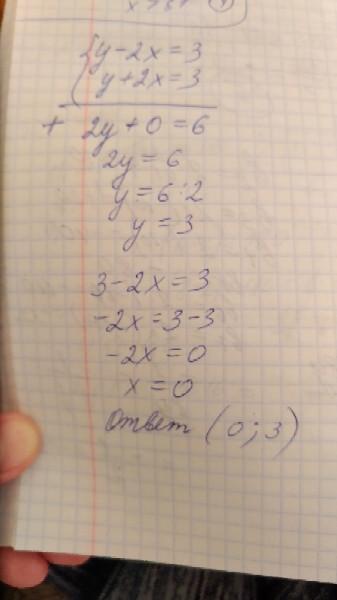 y-2x=3
y+2x=3
+ 2y+0=6
2y=6
y=6:2
y=3
3-2x=3
-2x=3-3
-2x=0
x=0
Ответ (0;3)